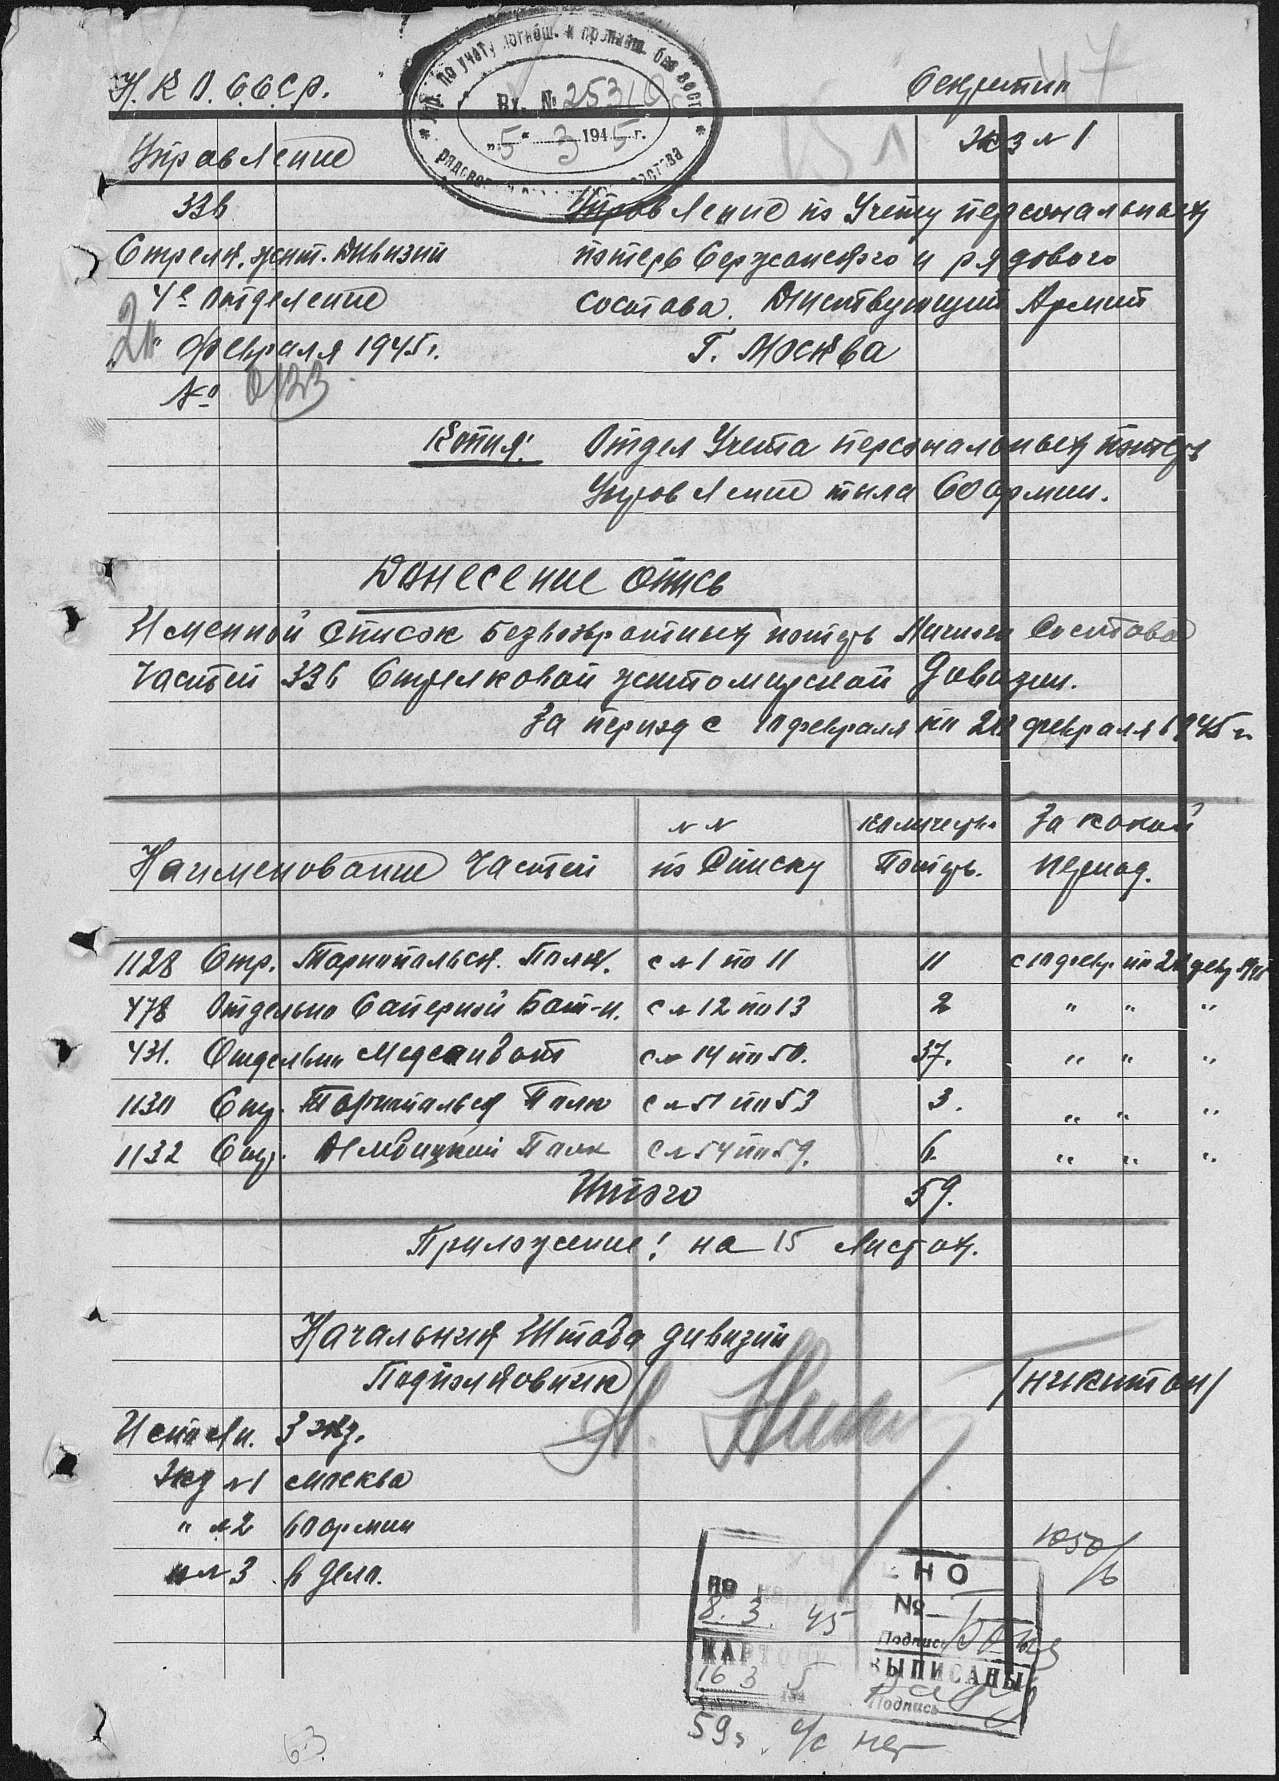 Н.К.О. С.С.С.Р.
Секретно
47
Упр. по учету погибш. и проп. без вест.
рядового и сержантского состава
Вх. № 25310
„5“ 3 1945 г.
Экз № 1
Управление
336
Стрелк. жит. Дивизии
4е Отделение
20 " Февраля 1945 г.
№ 0133
Управление по Учету персональных
потерь Сержанского и рядового
состава. Действующий Армии
Г. Москва
Копия: Отдел Учета персональных потерь
Управление тыла 60 армии.
Донесение опись
Именной Список Безвозвратных потерь Личного Состава
Частей 336 Стрелковой житомирской Дивизии.
За период с 10 февраля по 20 февраля 1945 г.
Наименование Частей
№ №
по Списку
количеств.
Потерь.
За какой
период.
1128 Стр. Тарнопольск. Полк. с №1 по 11 11 с 10 февр. по 20 февр.
478 Отдельно Саперной Бат-н. с № 12 по 13 2 " " "
431. Отдельн Медсанбат с № 14 по 50. 37. " " "
1130 Стр. Тарнопольск Полк с № 51 по 53 3. " " "
1132 Стр. Полк с № 54 по 59. 6. " " "
Итого 59.
Приложение! на 15 Листах.
Начальник Штаба дивизии
Подполковник /никитон/
Исполн. 3 экз.
Экз №1 москва
" №2 60 армии
" №3 в дела.
1050/6
ЕНО
по
8. 3. 45
№
Подпись
КАРТОЧКИ ВЫПИСАНЫ
16 3 5
194
Подпись
59 ч. о/с нет
63